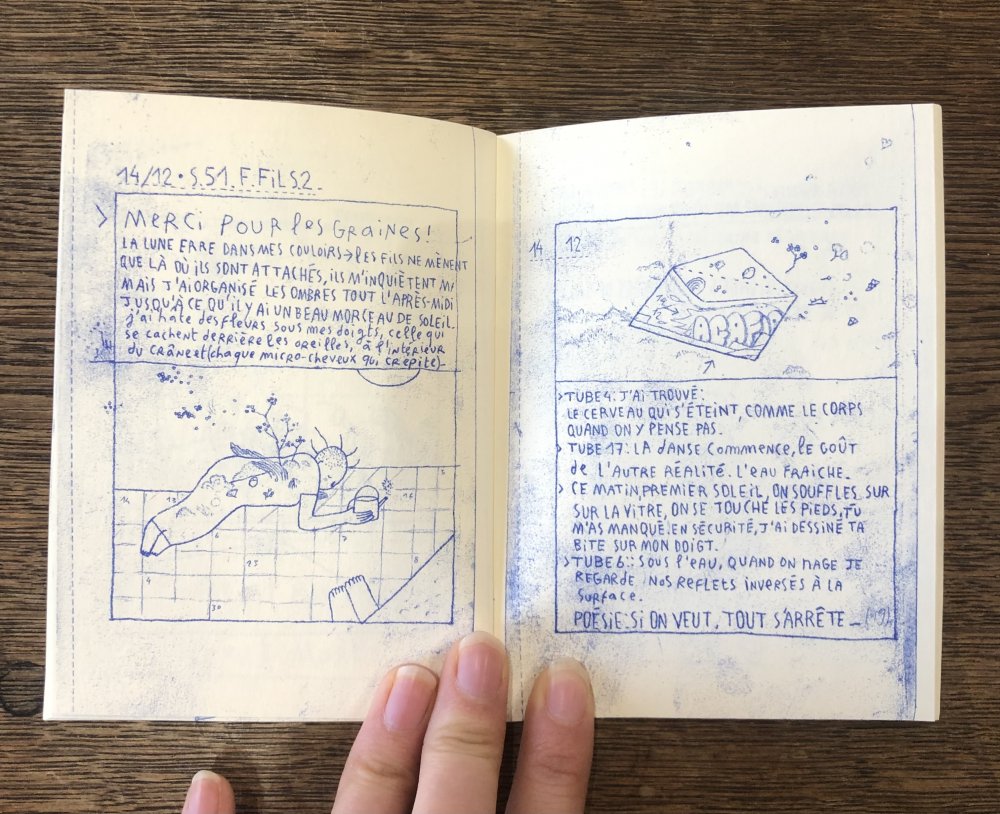 14/12 • S.51. F. FiLS2.
> MERCI POUR les GRAINES!
LA LUNE ERRE DANS MES COULOIRS → les FILS NE MÈNENT
QUE LÀ OÙ ILS SONT ATTACHÉS, ILS M'INQUIÈTENT
MAIS J'AI ORGANISÉ LES OMBRES TOUT L'APRÈS-MIDI
JUSQU'À CE QU'IL Y AI UN BEAU MORCEAU DE SOLEIL.
j'ai hâte des fleurs sous mes doigts, celle qui
se cachent derrière les oreilles, à l'intérieur
du crâne et (chaque micro-cheveux qui crépite)-
14
13
16
6
7
8
4
23
30
14 12
> TUBE 4: J'AI TROUVÉ:
LE CERVEAU QUI S'ÉTEINT, COMME LE CORPS
QUAND ON Y PENSE PAS.
> TUBE 17: LA DANSE COMMENCE, LE GOÛT
de L'AUTRE RÉALITÉ. L'EAU FRAICHE.
> CE MATIN, PREMIER SOLEIL, ON SOUFFLES SUR
SUR LA VITRE, ON SE TOUCHE LES PIEDS, TU
M'AS MANQUÉ. EN SÉCURITÉ, J'AI DESSINÉ TA
BITE SUR MON DOIGT.
> TUBE 6:: SOUS l'EAU, QUAND ON NAGE JE
REGARDE NOS REFLETS INVERSÉS À LA
SURFACE.
POÉSIE: SI ON VEUT, TOUT S'ARRÊTE_